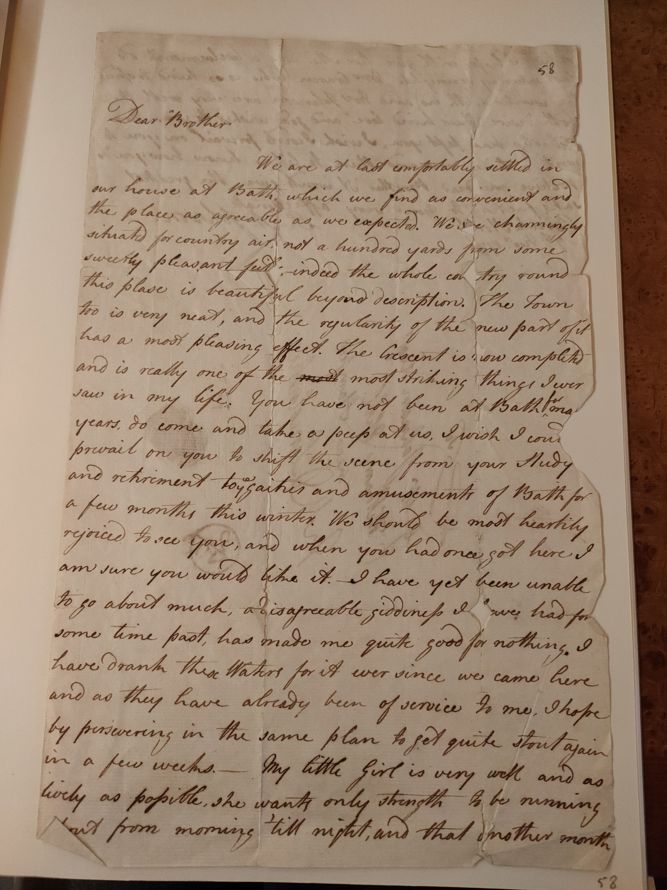 58
Dear Brother
We are at last comfortably settled in
our house at Bath, which we find as convenient and
the place as agreeable as we expected. We are charmingly
situated for country air, not a hundred yards from some
sweetly pleasant indeed the whole country round
this place is beautiful beyond description. The Town
too is very neat, and the regularity of the new part of it
has a most pleasing effect. The Crescent is now completed
and is really one of the most most striking things I ever
saw in my life. You have not been at Bath for many
years, do come and take a peep at us, I wish I coud
prevail on you to shift the scene from your Study
and retirement to ye gaities and amusements of Bath for
a few months this winter. We should be most heartily
rejoiced to see you, and when you had once got here I
am sure you would like it. — I have yet been unable
to go about much, a disagreeable giddiness I have had for
some time past, has made me quite good for nothing. I
have drank these Waters for it ever since we came here
and as they have already been of service to me, I hope
by persevering in the same plan to get quite stout again
in a few weeks. — My little Girl is very well and as
lively as possible, she wants only strength to be running
about from morning 'till night, and that another month
58